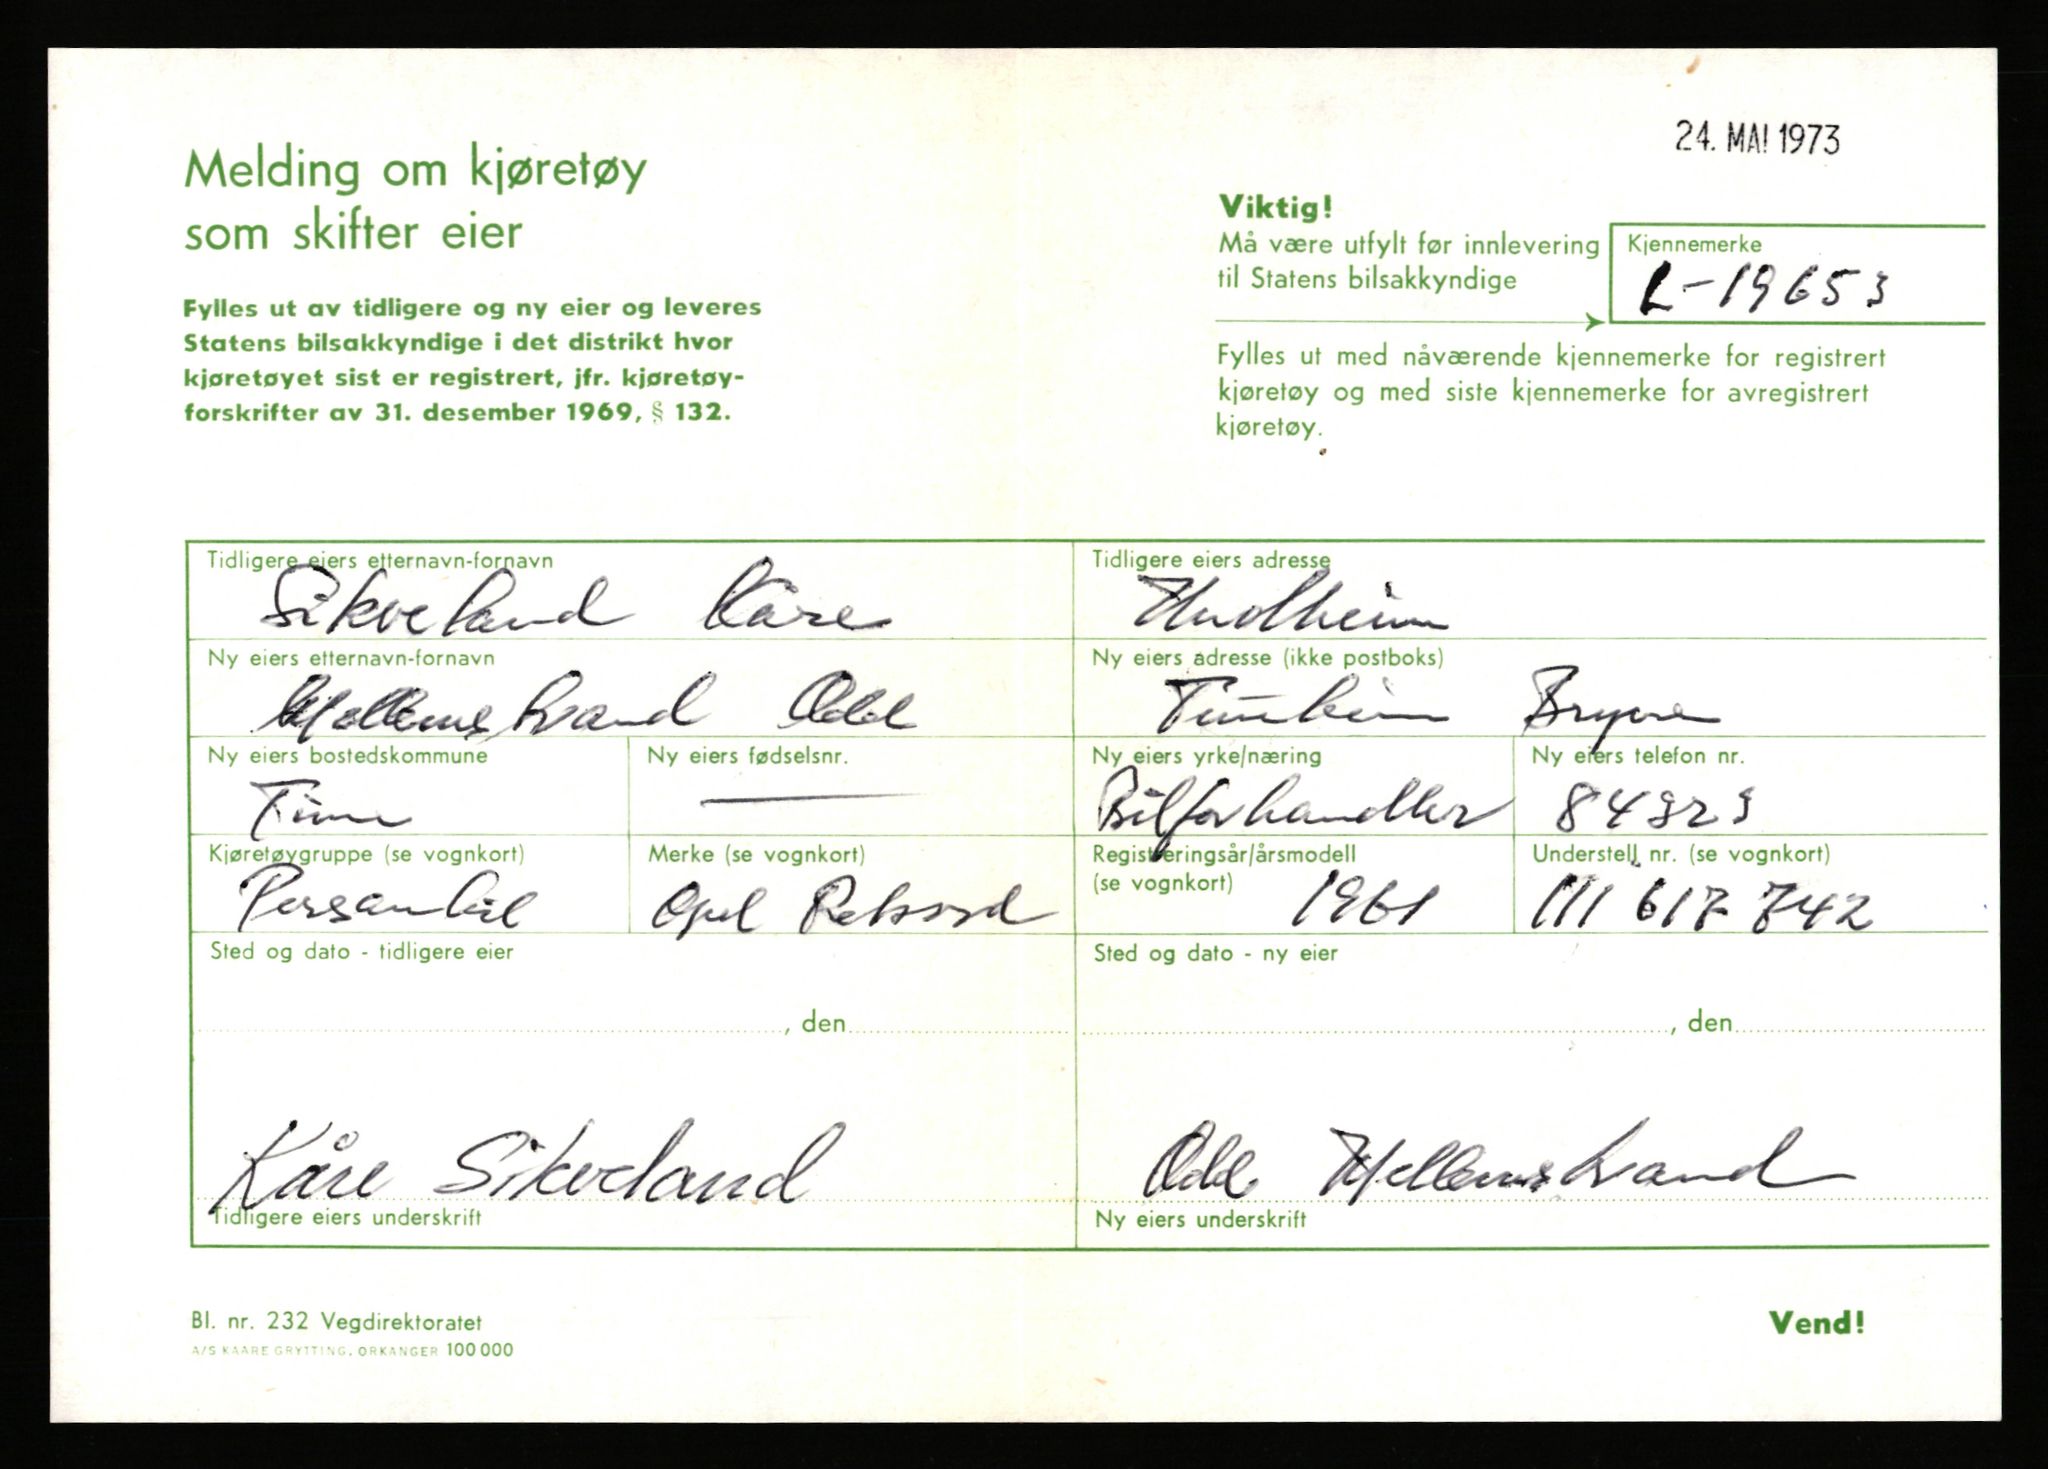 24. MAI 1973
Melding om kjøretøy
som skifter eier
Fylles ut av tidligere og ny eier og leveres
Statens bilsakkyndige i det distrikt hvor
kjøretøyet sist er registrert, jfr. kjøretøy-
forskrifter av 31. desember 1969, § 132.
Viktig!
Må være utfylt før innlevering
til Statens bilsakkyndige
Kjennemerke
L-19653
Fylles ut med nåværende kjennemerke for registrert
kjøretøy og med siste kjennemerke for avregistrert
kjøretøy.
Tidligere eiers etternavn-fornavn
Sikveland Kåre
Tidligere eiers adresse
Ny eiers etternavn-fornavn
Hellemstrand Odd
Ny eiers adresse (ikke postboks)
Ny eiers bostedskommune
Time
Ny eiers fødselsnr.
Ny eiers yrke/næring
Bilforhandler
Ny eiers telefon nr.
Kjøretøygruppe (se vognkort)
Personbil
Merke (se vognkort)
Opel Rekord
Registreringsår/årsmodell
(se vognkort)
1961
Understell nr. (se vognkort)
111 617 742
Sted og dato - tidligere eier
, den
Sted og dato - ny eier
, den
Kåre Sikveland
Tidligere eiers underskrift
Odd Hellemstrand
Ny eiers underskrift
Bl. nr. 232 Vegdirektoratet
A/S KAARE GRYTTING, ORKANGER 100 000
Vend!